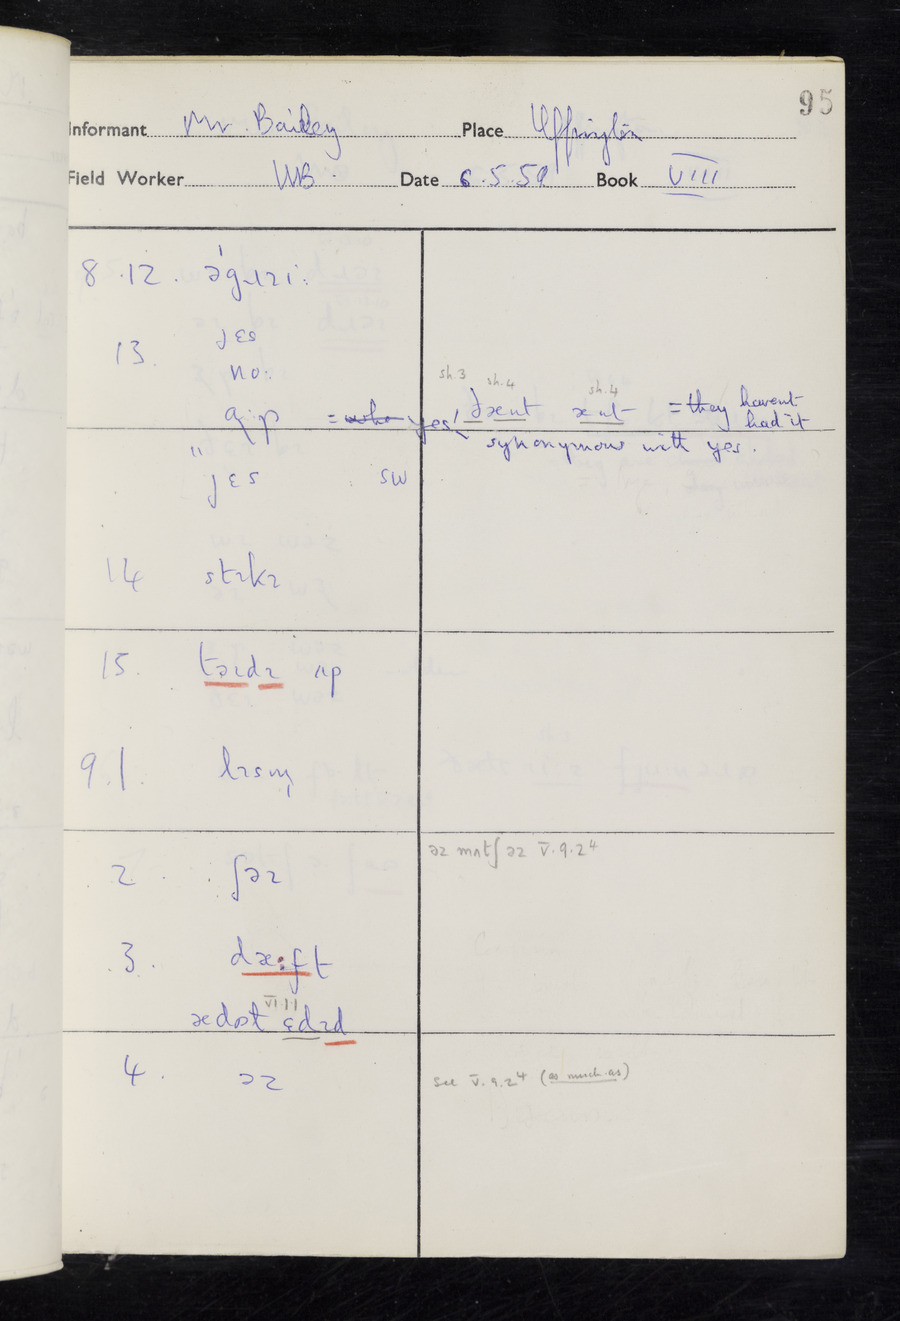 95
Informant Mr. Bailey Place Uffington
Field Worker WB Date 6.5.59 Book VIII
8.12. əˈgɹɪiː
13. jɛs
noː
= yes! sh.3 sh.4 ðænt sh.4 ænt = they havent had it
" synonymous with yes.
jɛs SW
14 stɪkɪ
15. təɪdɪ ʌp
9.1. lɪsn̩
2. ʃəɪ əz mʌtʃ əz V.9.2⁴
3. dæːft
VI.1.1
ædɒt ɛdɪd
4. əz see V.9.2⁴ (as much as)